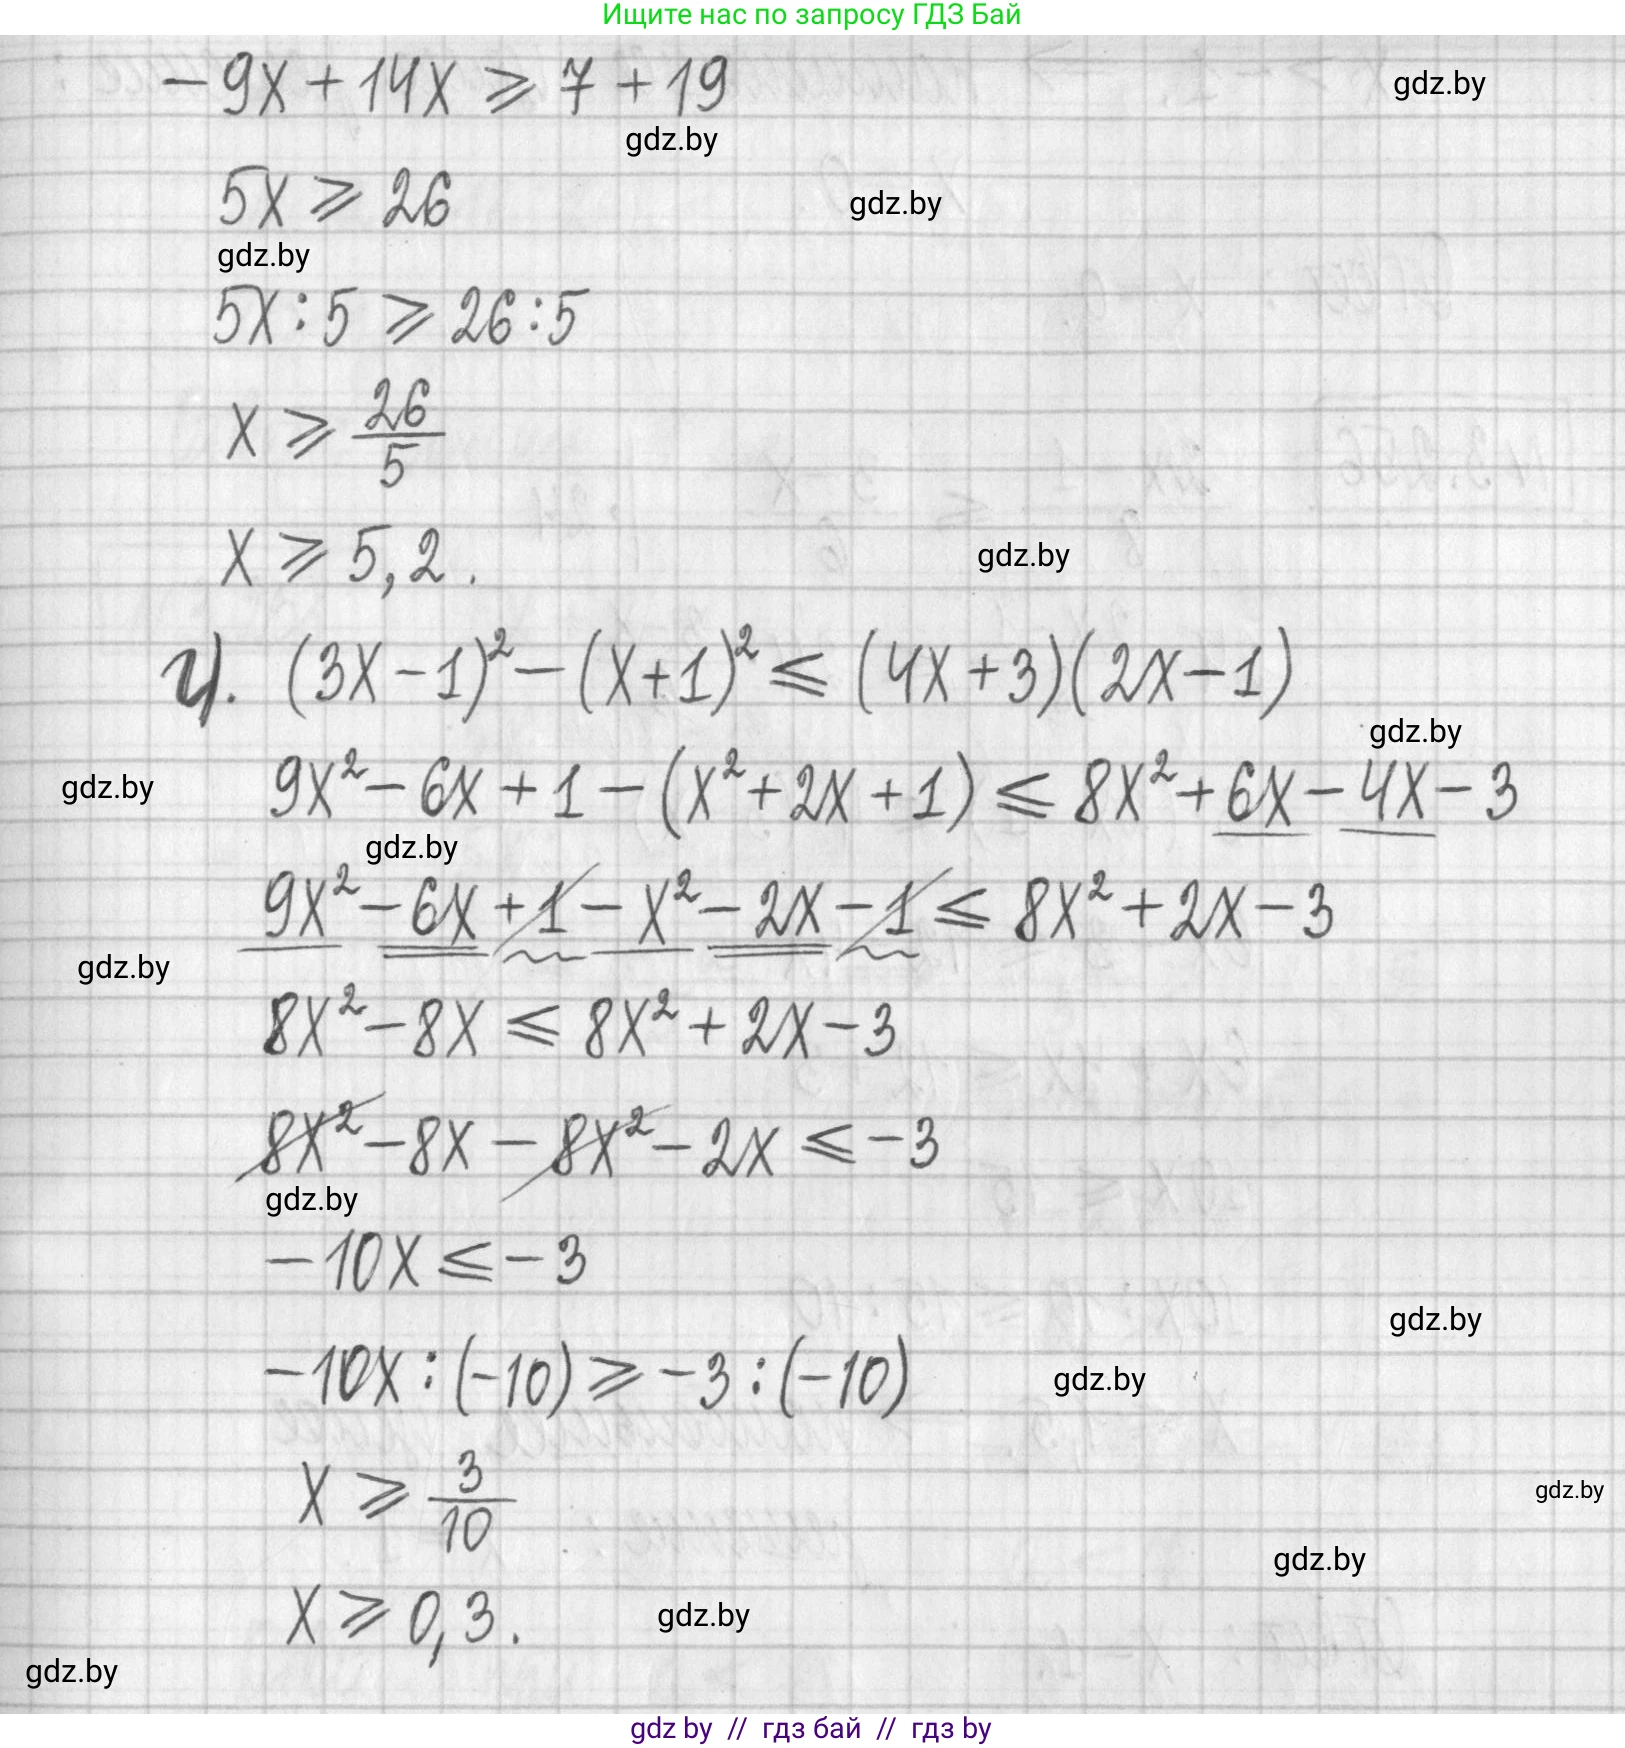 Ищите нас по запросу ГДЗ Бай
-9x + 14x ⩾ 7 + 19
gdz.by
gdz.by
5x ⩾ 26
gdz.by
gdz.by
5x : 5 ⩾ 26 : 5
x ⩾ 26/5
x ⩾ 5,2.
gdz.by
г). (3x - 1)² - (x + 1)² ⩽ (4x + 3)(2x - 1)
gdz.by
9x² - 6x + 1 - (x² + 2x + 1) ⩽ 8x² + 6x - 4x - 3
gdz.by
gdz.by
9x² - 6x + 1 - x² - 2x - 1 ⩽ 8x² + 2x - 3
gdz.by
8x² - 8x ⩽ 8x² + 2x - 3
8x² - 8x - 8x² - 2x ⩽ -3
gdz.by
-10x ⩽ -3
gdz.by
-10x : (-10) ⩾ -3 : (-10)
gdz.by
x ⩾ 3/10
gdz.by
gdz.by
x ⩾ 0,3.
gdz.by
gdz.by
gdz by // гдз бай // гдз by